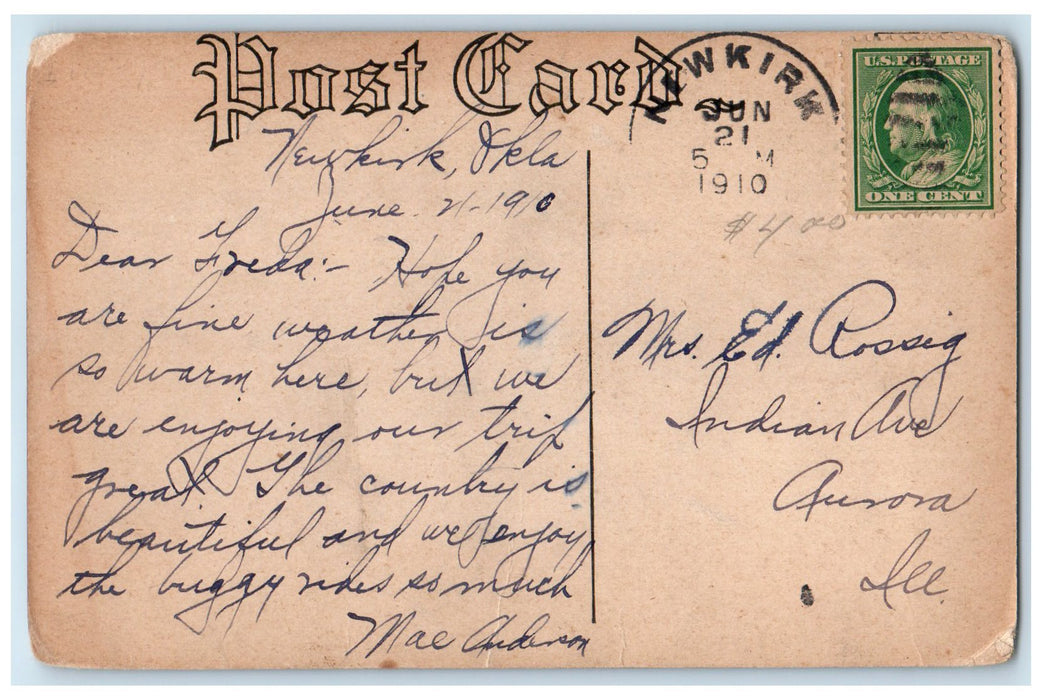 Post Card
NEWKIRK
JUN
21
5 M
1910
U.S. POSTAGE
ONE CENT
$4.00
Newkirk, Okla
June. 21-1910
Dear Freda:- Hope you
are fine weather is
so warm here, but we
are enjoying our trip
great. The country is
beautiful and we enjoy
the buggy rides so much
Mae Anderson
Mrs. Ed. Rossig
Indian Ave
Aurora
Ill.